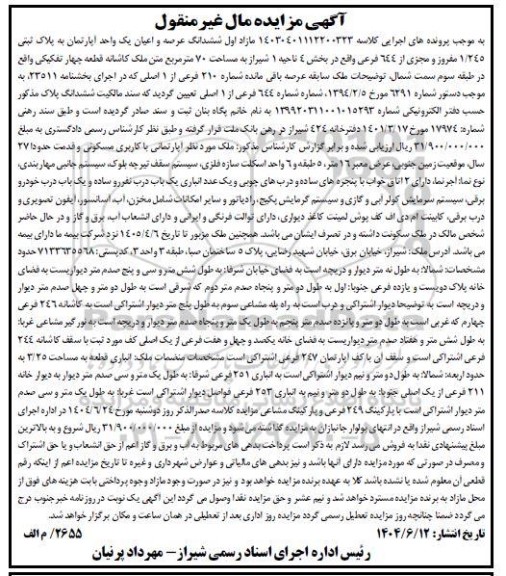 آگهی مزایده مال غیر منقول
به موجب پرونده های اجرایی کلاسه ۱۴۰۳۰۴۰۱۱۱۲۲۰۰۳۲۳ مازاد اول ششدانگ عرصه و اعیان یک واحد آپارتمان به پلاک ثبتی
۱/۲۴۵ مفروز و مجزی از ۶۴۴ فرعی واقع در بخش ۴ ناحیه ۱ شیراز به مساحت ۷۰ مترمربع متن ملک کاشانه قطعه چهار تفکیکی واقع
در طبقه سوم سمت شمال، توضیحات ملک سابقه عرصه باقی مانده شماره ۲۱۰ فرعی از ۱ اصلی که در اجرای بخشنامه ۲۳۵۱۱، به
موجب دستور شماره ۶۲۹۱ مورخ ۱۳۹۴/۲/۵، شماره ۶۴۴ فرعی از ۱ اصلی تعیین گردید که سند مالکیت ششدانگ پلاک مذکور
حسب دفتر الکترونیکی شماره ۱۳۹۹۲۰۳۱۱۰۰۱۰۱۵۲۹۳ به نام خانم پگاه بنان ثبت و سند صادر گردیده است و طبق سند رهنی
شماره: ۱۷۹۷۴ مورخ ۱۴۰۱/۳/۱۷ دفترخانه ۴۲۴ شیراز در رهن بانک ملت قرار گرفته و طبق نظر کارشناس رسمی دادگستری به مبلغ
۳۱/۹۰۰/۰۰۰/۰۰۰ ریال ارزیابی شده و برابر گزارش کارشناس مذکور: ملک مورد نظر آپارتمانی با کاربری مسکونی و قدمت حدودا ۲۷
سال، موقعیت زمین جنوبی، عرض معبر ۱۶ متر، ۵ طبقه و ۶ واحد اسکلت سازه فلزی، سیستم سقف تیرچه بلوک، سیستم جانبی مهاربندی،
نوع نما: آجرنما، دارای ۲ اتاق خواب با پنجره های ساده و درب های چوبی و یک عدد انباری یک باب درب نفررو ساده و یک باب درب خودرو
برقی، سیستم سرمایش کولر آبی و گازی و سیستم گرمایش پکیج، رادیاتور و سایر امکانات شامل مخزن، آب، آسانسور، آیفون تصویری و
درب برقی، کابینت ام.دی اف کف پوش لمینت کاغذ دیواری، دارای توالت فرنگی و ایرانی و دارای انشعاب آب، برق و گاز و در حال حاضر
شخص مالک در ملک سکونت داشته و در تصرف ایشان می باشد. همچنین ملک مزبور تا تاریخ ۱۴۰۵/۴/۶ نزد شرکت بیمه ما دارای بیمه
می باشد. آدرس ملک: شیراز، خیابان برق، خیابان شهید رضایی، پلاک ۵ ساختمان صبا، طبقه ۳ واحد ۴، کدپستی: ۷۱۳۳۶۳۵۵۶۸ حدود
مشخصات: شمالا: به طول نه متر دیوار و دریچه است به فضای خیابان شرقا: به طول شش متر و سی و پنج صدم متر دیواریست به فضای
خانه پلاک دویست و یازده فرعی جنوبا: اول به طول دو متر و پنجاه صدم متر دوم که شرقی است به طول دو متر و چهل صدم متر دیوار
و دریچه است به توضیحا دیوار اشتراکی و درب است به راه پله مشاعی سوم به طول پنج متر دیوار اشتراکی است به کاشانه ۲۴۶ فرعی
چهارم که غربی است به طول دو متر و پانزده صدم متر پنجم به طول یک متر و پنجاه صدم متر دیوار و دریچه است به نورگیر مشاعی غربا:
به طول شش متر و هفتاد صدم متر دیواریست به فضای خانه یکصد و چهل و هفت فرعی از یک اصلی کف مورد ثبت با سقف کاشانه ۲۴۴
فرعی اشتراکی است و سقف آن با کف آپارتمان ۲۴۷ فرعی اشتراکی است مشخصات منضمات ملک: انباری قطعه به مساحت ۳/۲۵ به
حدود اربعه: شمالا: به طول دو متر و نیم دیوار اشتراکی است به انباری ۲۵۱ فرعی شرقا: به طول یک متر و سی صدم متر دیوار به دیوار خانه
۲۱۱ فرعی از یک اصلی جنوبا: به طول دو متر و نیم به انباری ۲۵۳ فرعی فواصل دیوار اشتراکی است غربا: به طول یک متر و سی صدم
متر دیوار اشتراکی است با پارکینگ ۲۴۹ فرعی و پارکینگ مشاعی مزایده کلاسه صدرالذکر روز دوشنبه مورخ ۱۴۰۴/۶/۲۴ در اداره اجرای
اسناد رسمی شیراز واقع در انتهای بولوار جانبازان به مزایده گذاشته می شود و مزایده از مبلغ ۳۱/۹۰۰/۰۰۰/۰۰۰ ریال شروع و به بالاترین
مبلغ پیشنهادی نقدا به فروش می رسد لازم به ذکر است پرداخت بدهی های مربوط به آب و برق و گاز اعم از حق انشعاب و یا حق اشتراک
و مصرف در صورتی که مورد مزایده دارای آنها باشد و نیز بدهی های مالیاتی و عوارض شهرداری و غیره تا تاریخ مزایده اعم از اینکه رقم
قطعی آن معلوم شده یا نشده باشد کلا به عهده برنده مزایده خواهد بود و نیز در صورت وجود مازاد وجوه پرداختی بابت هزینه های فوق از
محل مازاد به برنده مزایده مسترد خواهد شد و نیم عشر و حق مزایده نقدا وصول می گردد این آگهی یک نوبت در روزنامه خبر جنوب درج
می گردد ضمنا چنانچه روز مزایده تعطیل رسمی گردد مزایده روز اداری بعد از تعطیلی در همان ساعت و مکان برگزار خواهد شد.
تاریخ انتشار: ۱۴۰۴/۶/۱۲
۲۶۵۵/ م الف
رئیس اداره اجرای اسناد رسمی شیراز – مهرداد پرنیان